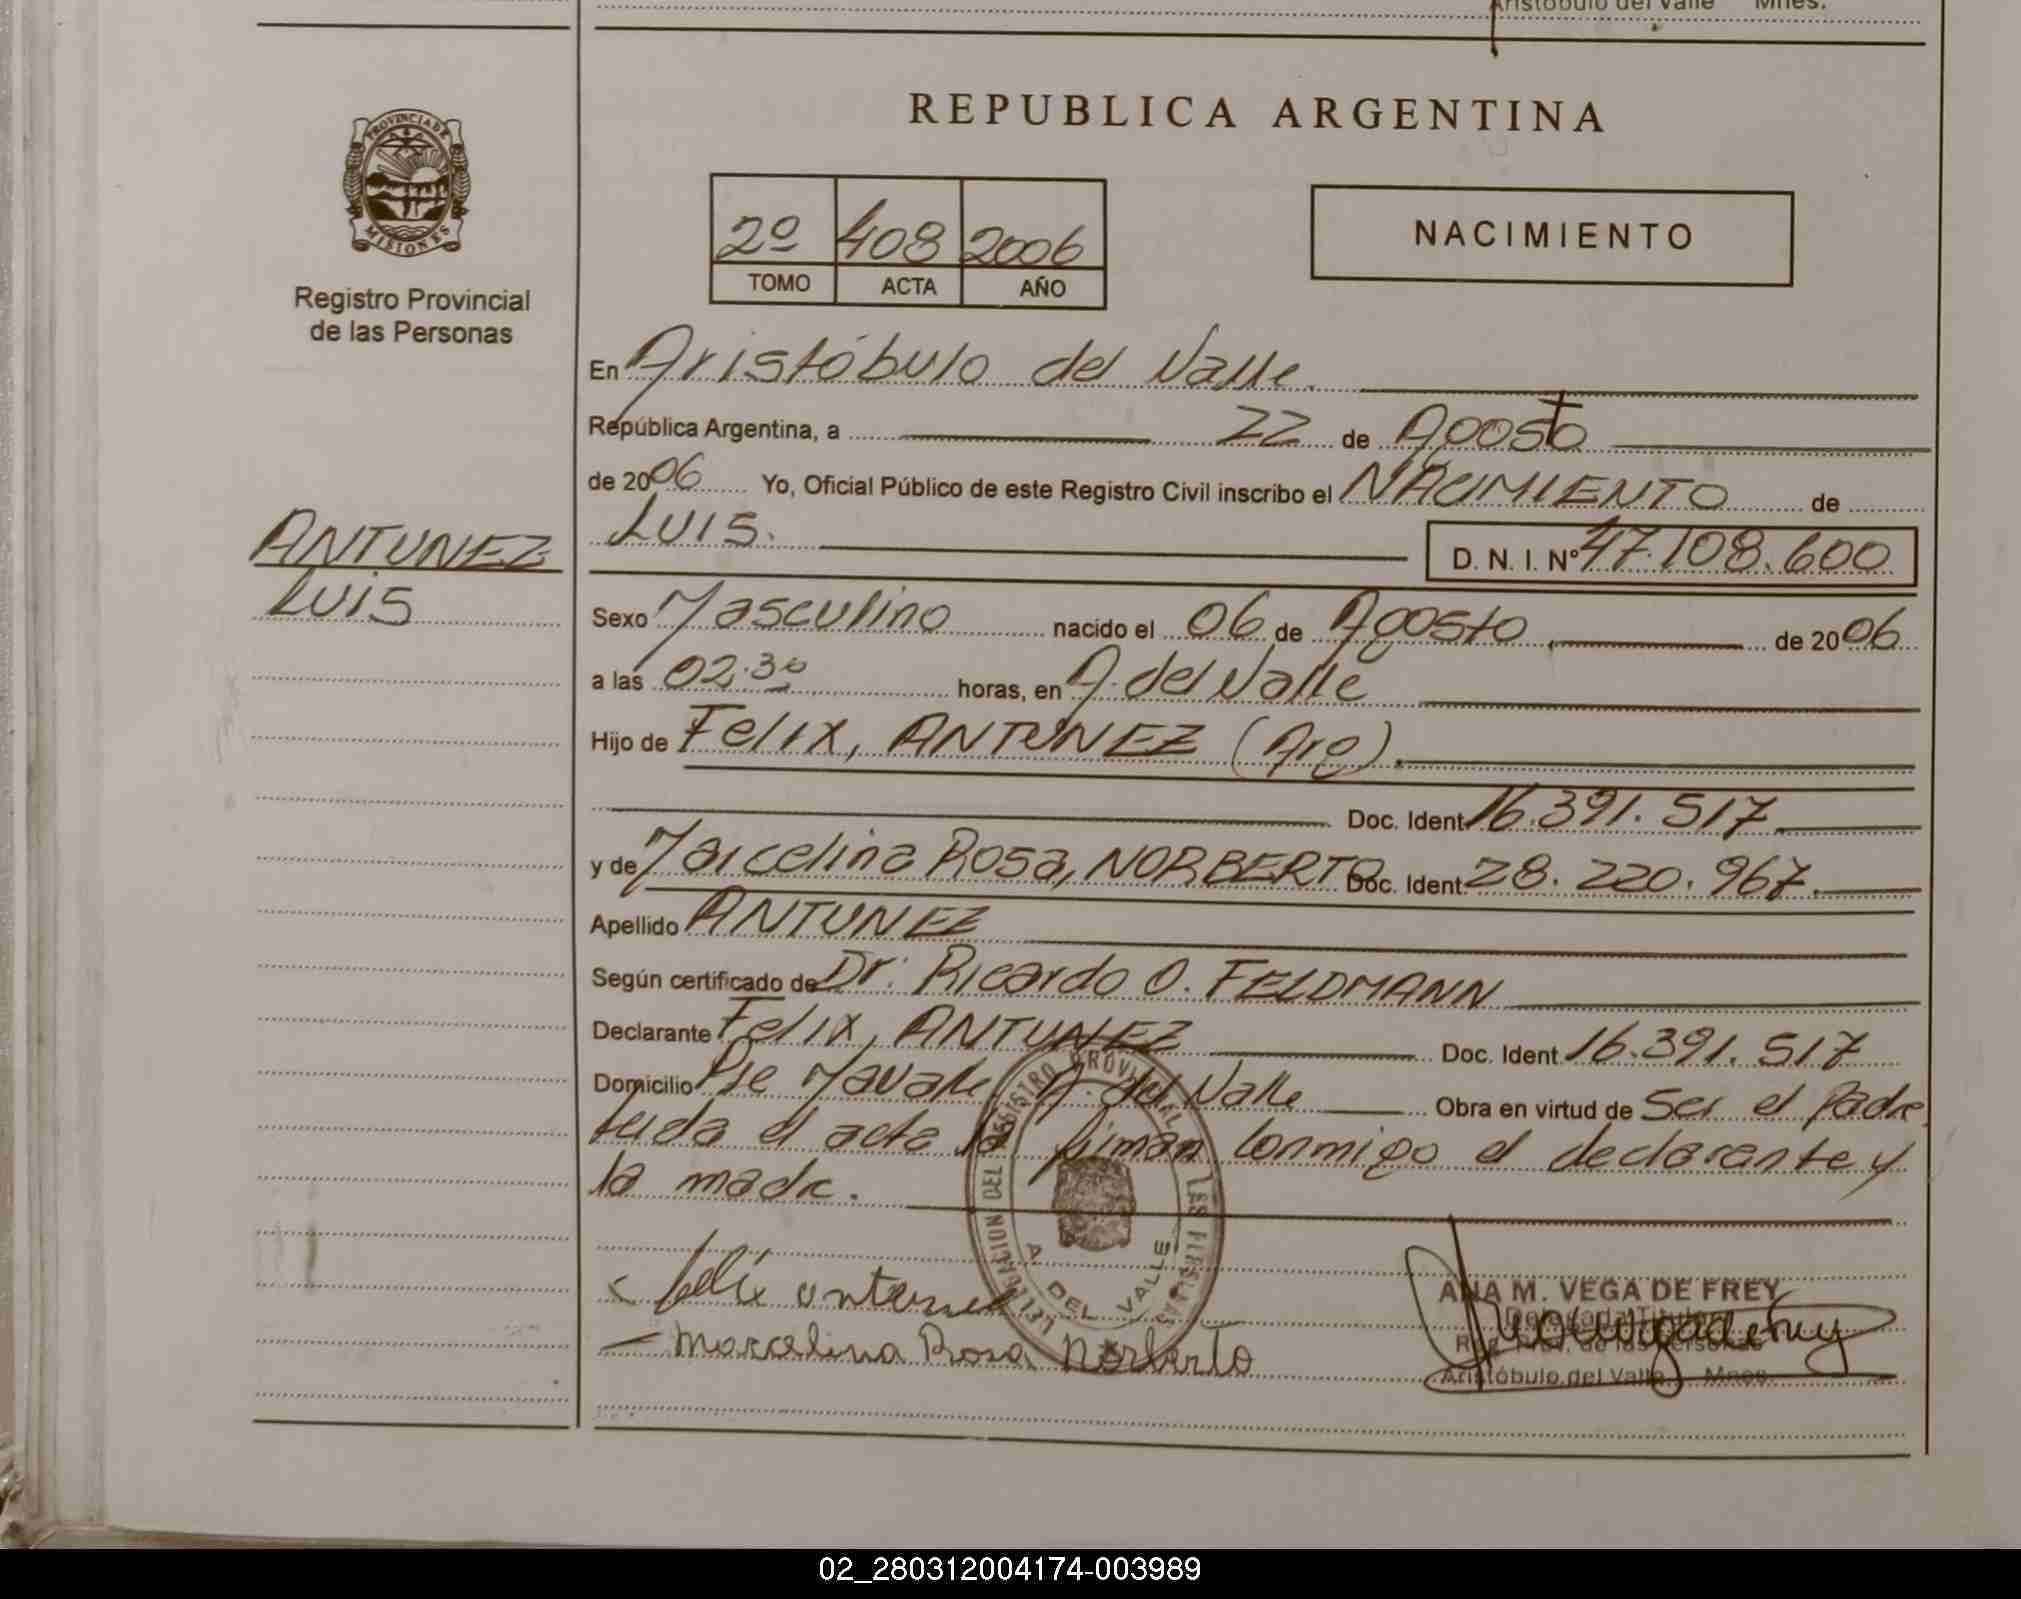 Aristóbulo del Valle Mnes.
REPUBLICA ARGENTINA
PROVINCIA DE
MISIONES
Registro Provincial
de las Personas
2º 408 2006
TOMO ACTA AÑO
NACIMIENTO
En Aristóbulo del Valle.
República Argentina, a 22 de Agosto
de 2006 Yo, Oficial Público de este Registro Civil inscribo el NACIMIENTO de
LUIS.
D. N. I. Nº 47.108.600
ANTUNEZ
LUIS
Sexo Masculino nacido el 06 de Agosto de 2006
a las 02.30 horas, en A. del Valle
Hijo de Felix, ANTUNEZ (Arg).
Doc. Ident 16.391.517
y de Marcelina Rosa, NORBERTO Doc. Ident 28.220.967.
Apellido ANTUNEZ
Según certificado de Dr. Ricardo O. FELDMANN
Declarante Felix, ANTUNEZ Doc. Ident 16.391.517
Domicilio A. del Valle Obra en virtud de Ser el Padre
el acta la firman conmigo el declarante y
la madre.
DELEGACION DEL REGISTRO PROVINCIAL DE LAS PERSONAS
A. DEL VALLE
Felix antunez
Marcelina Rosa Norberto
ANA M. VEGA DE FREY
Delegada Titular
Reg. Prov. de las Personas
Aristóbulo del Valle Mnes.
02_280312004174-003989